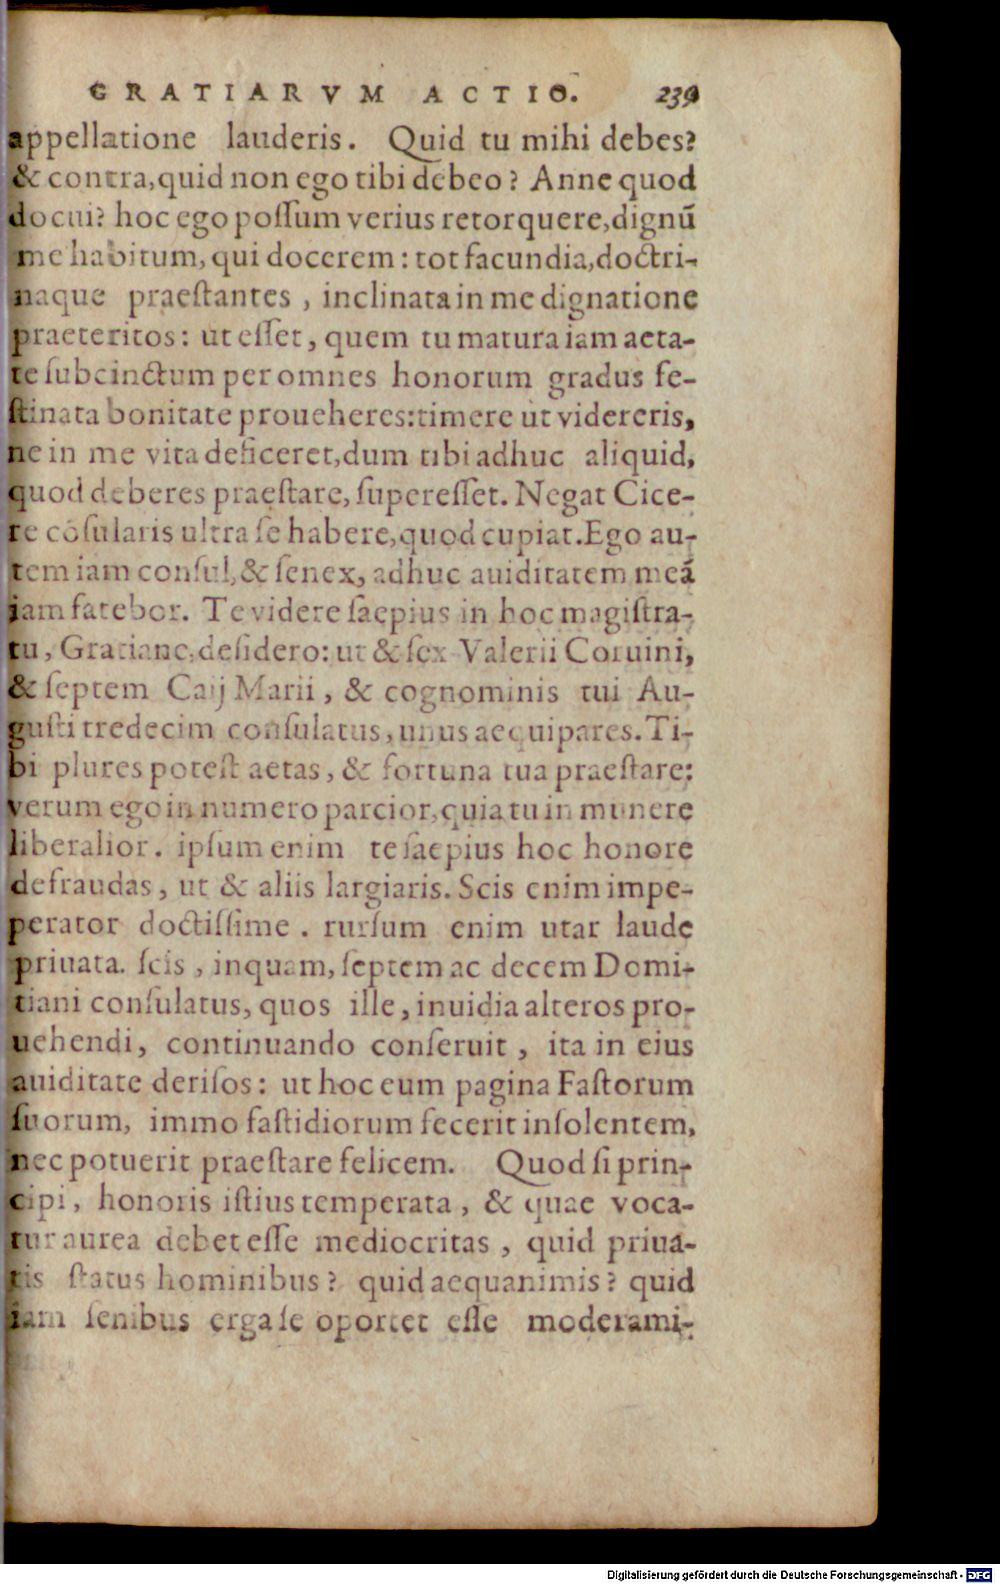 GRATIARVM ACTIO. 239
appellatione lauderis. Quid tu mihi debes?
& contra, quid non ego tibi debeo? Anne quod
docui? hoc ego poſſum verius retorquere, dignũ
me habitum, qui docerem: tot facundia, doctri-
naque praeſtantes, inclinata in me dignatione
praeteritos: ut eſſet, quem tu matura iam aeta-
te ſubcinctum per omnes honorum gradus fe-
ſtinata bonitate proueheres: timere ut videreris,
ne in me vita deficeret, dum tibi adhuc aliquid,
quod deberes praeſtare, ſupereſſet. Negat Cice-
re cõſularis ultra ſe habere, quod cupiat. Ego au-
tem iam conſul, & ſenex, adhuc auiditatem meã
iam fatebor. Te videre ſaepius in hoc magiſtra-
tu, Gratiane, deſidero: ut & ſex Valerii Coruini,
& ſeptem Caij Marii, & cognominis tui Au-
guſti tredecim conſulatus, unus aequipares. Ti-
bi plures poteſt aetas, & fortuna tua praeſtare:
verum ego in numero parcior, quia tu in munere
liberalior. ipſum enim te ſaepius hoc honore
defraudas, ut & aliis largiaris. Scis enim impe-
perator doctiſſime. rurſum enim utar laude
priuata. ſcis, inquam, ſeptem ac decem Domi-
tiani conſulatus, quos ille, inuidia alteros pro-
uehendi, continuando conſeruit, ita in eius
auiditate deriſos: ut hoc eum pagina Faſtorum
ſuorum, immo faſtidiorum fecerit inſolentem,
nec potuerit praeſtare felicem. Quod ſi prin-
cipi, honoris iſtius temperata, & quae voca-
tur aurea debet eſſe mediocritas, quid priua-
tis ſtatus hominibus? quid aequanimis? quid
iam ſenibus erga ſe oportet eſſe moderami-
Digitalisierung gefördert durch die Deutsche Forschungsgemeinschaft - DFG